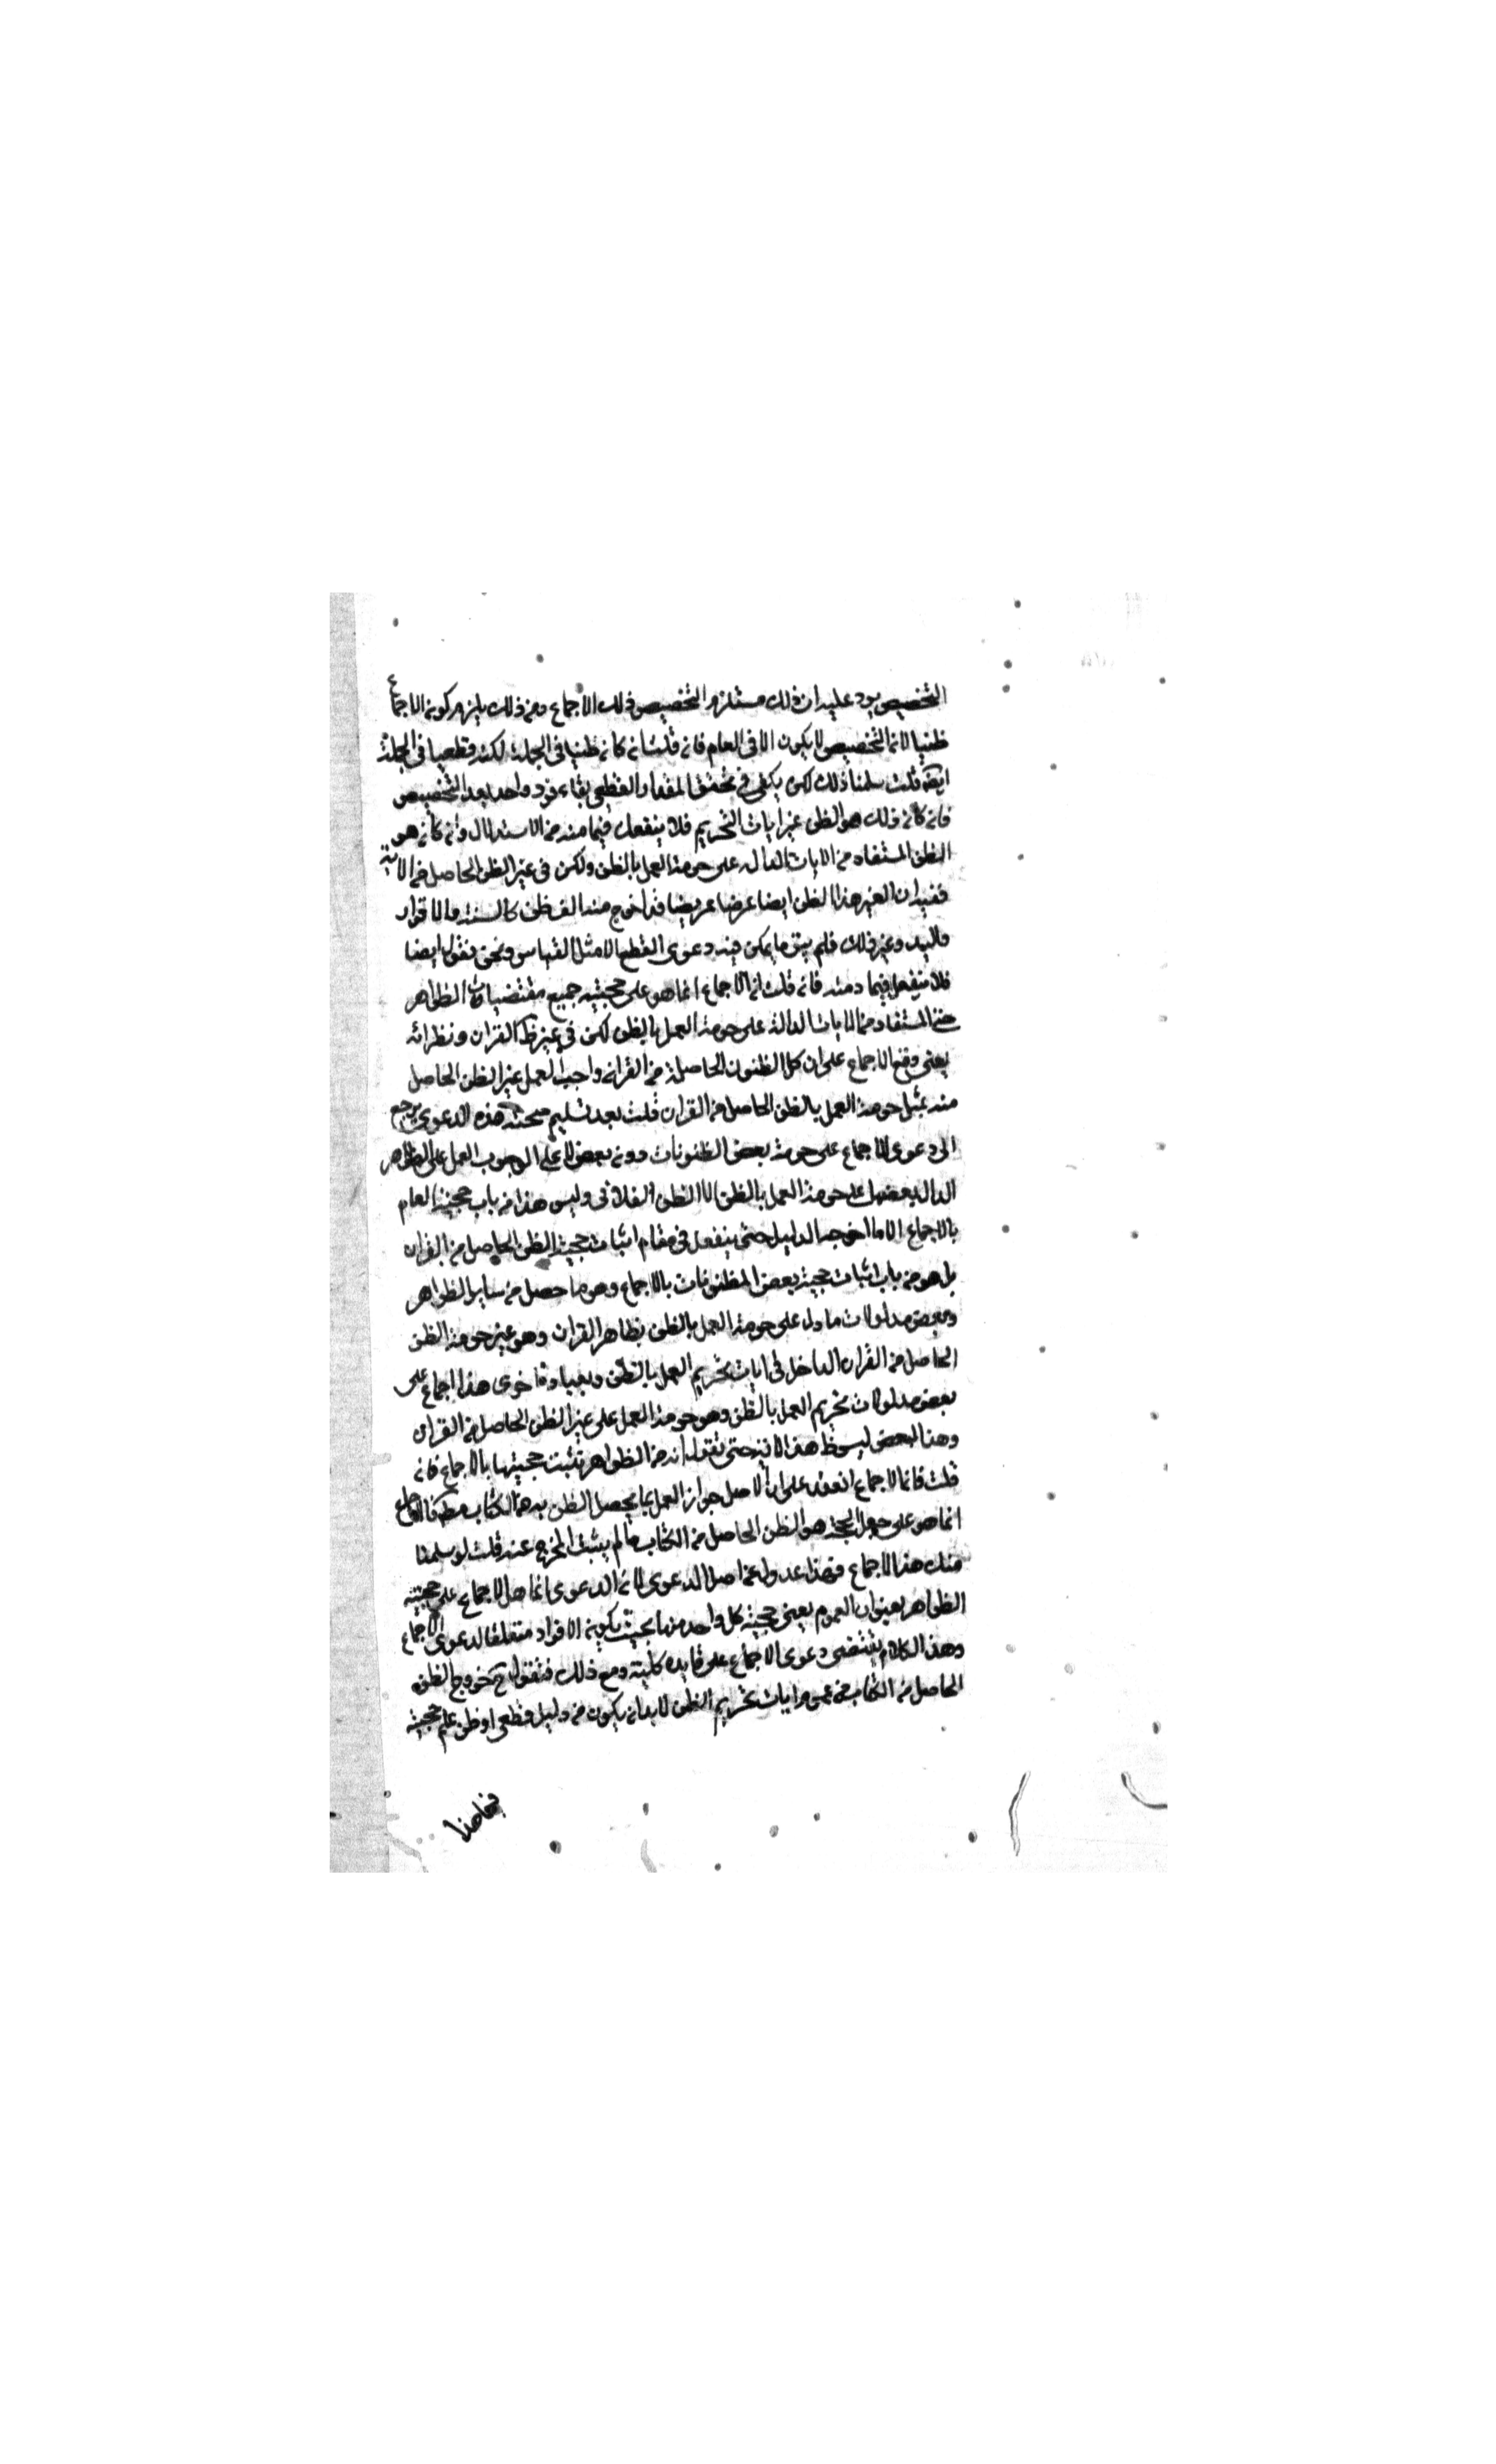 التخصيص يرد عليه ان ذلك مستلزم التخصيص ذلك الاجماع ومن ذلك يلزم كونه الاجماع
ظنيا لان التخصيص لا يكون الا في العام فان قلت انه كان ظنيا في الجملة لكنه قطعيا في الجملة
ايضا قلت سلمنا ذلك لكن يكفي في تحقق المقدار القطعي بقاء فرد واحد بعد التخصيص
فان كان ذلك هو الظن غير ايات التحريم فلا ينفعك فيما منه من الاستدلال وان كان هو
الظن المستفاد من الايات الداله على حرمة العمل بالظن ولكن في غير الظن الحاصل من الاية
ففيه ان لغير هذا الظن ايضا عرضا عريضا قد اخرج منه الف ظن كالسنة والاقرار
واليد وغير ذلك فلم يبق ما يمكن فيه دعوى القطع الا مثل القياس ونحن نقول ايضا
فلا ينفعك فيما دمته فان قلت ان الاجماع انما هو على حجية جميع مقتضيات الظواهر
حتى المستفاد من الايات الدالة على حرمة العمل بالظن لكن في غير ظ القران ونظرائه
يعني وقع الاجماع على ان كل الظنون الحاصلة من القران واجب العمل غير الظن الحاصل
منه بمثل حرمة العمل بالظن الحاصل من القران قلت بعد تسليم صحة هذه الدعوى يرجع
الى دعوى الاجماع على حرمة بعض الظنونات دون بعض لا على الوجوب العمل على الظواهر
الدال بعضها على حرمة العمل بالظن الا الظن الفلاني وليس هذا من باب حجية العام
بالاجماع الا ما اخرجه الدليل حتى ينفعك في مقام اثبات حجية الظن الحاصل من القران
بل هو من باب اثبات حجية بعض المظنونات بالاجماع وهو ما حصل من ساير الظواهر
وبعض مدلولات ما دل على حرمة العمل بالظن بظاهر القران وهو غير حرمة الظن
الحاصل من القران الداخل في ايات تحريم العمل بالظن وبعبارة اخرى هذا اجماع على
بعض مدلولات تحريم العمل بالظن وهو حرمة العمل على غير الظن الحاصل من القران
وهذا البعض ليس ظ هذه الاية حتى تقول انه من الظواهر تثبت حجيتها بالاجماع فان
قلت فان الاجماع انعقد على ان الاصل جواز العمل بما يحصل الظن به من الكتاب
انما هو على جعل الحجة هو الظن الحاصل من الكتاب ما لم يثبت المخرج عنه قلت لو سلمنا
منك هذا الاجماع فهذا عدول عن اصل الدعوى لان الدعوى انما هو الاجماع على حجية
الظواهر بعنوان العموم يعني حجية كل واحد منها بحيث يكون الافراد متعلقا لدعوى الاجماع
وهذا الكلام يقتضي دعوى الاجماع على قاعدة كلية ومع ذلك فنقول ح خروج الظن
الحاصل من الكتاب من عموم ايات تحريم الظن لا بد ان يكون من دليل قطعي او ظن علم حجيته